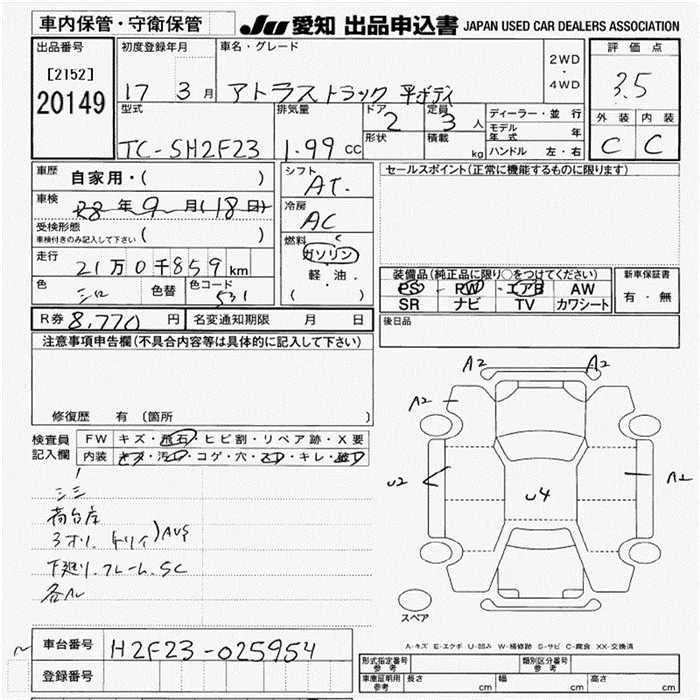 車内保管・守衛保管 JU 愛知 出品申込書 JAPAN USED CAR DEALERS ASSOCIATION
出品番号 初度登録年月 車名・グレード 2WD・4WD 評価点
[2152] 17 3月 アトラストラック 平ボディ 3.5
20149 型式 排気量 ドア 2 定員 3人 ディーラー・並行 外装 内装
TC-SH2F23 1.99 CC 形状 積載 kg モデル年式 年 C C
ハンドル 左・右
車歴 自家用・( ) シフト AT. セールスポイント(正常に機能するものに限ります)
車検 R8年9月(18日) 冷房 AC
受検形態 ( ) 燃料
車検付きのみ記入して下さい ガソリン
走行 21万0千859km 軽油・ 装備品(純正品に限り○をつけてください) 新車保証書
色 シロ 色替 色コード 531 ( ) PS PW エアB AW 有・無
SR ナビ TV カワシート
R券 8,770円 名変通知期限 月 日 後日品
注意事項申告欄(不具合内容等は具体的に記入して下さい)
修復歴 有(箇所 )
検査員 FW キズ・飛石・ヒビ割・リペア跡・X要
記入欄 内装 キズ・汚レ・コゲ・穴・スレ・キレ・破レ
A2 A2
A2
U2 U4 A1
シミ
荷台床
3オリ
下廻り.フレーム.SC
各ル
スペア
A-キズ E-エクボ U-凹み W-補修跡 S-サビ C-腐食 XX-交換済
車台番号 H2F23-025954
登録番号
形式指定番号 参考 類別区分番号 参考
車庫証明用 参考 長さ cm 幅 cm 高さ cm